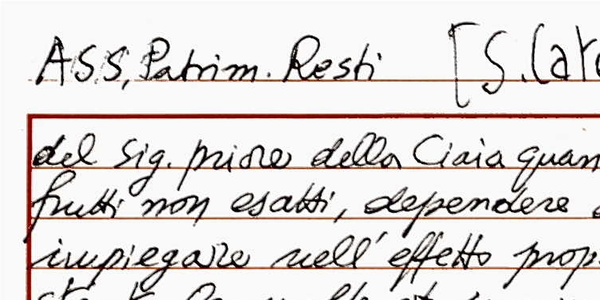 ASS, Patrim. Resti [S.
del Sig. priore della Ciaia
frutti non esatti, dependere
impiegare nell'effetto